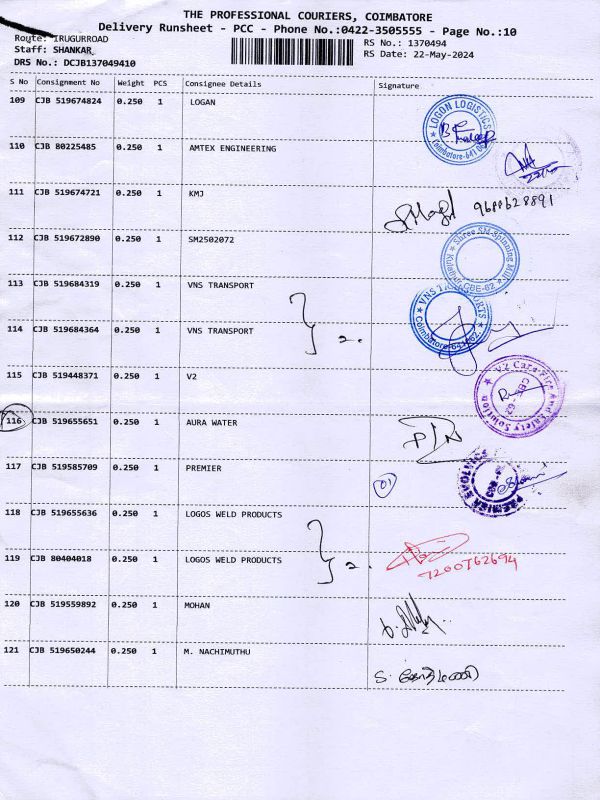 THE PROFESSIONAL COURIERS, COIMBATORE
Delivery Runsheet - PCC - Phone No.:0422-3505555 - Page No.:10
Route: IRUGURROAD
RS No.: 1370494
Staff: SHANKAR
RS Date: 22-May-2024
DRS No.: DCJB137049410
S No Consignment No Weight PCS Consignee Details Signature
109 CJB 519674824 0.250 1 LOGAN
LOGON LOGISTICS
110 CJB 80225485 0.250 1 AMTEX ENGINEERING
111 CJB 519674721 0.250 1 KMJ
9688628891
112 CJB 519672890 0.250 1 SM2502072
Shree SM Spinning Mill
113 CJB 519684319 0.250 1 VNS TRANSPORT
114 CJB 519684364 0.250 1 VNS TRANSPORT
2.
115 CJB 519448371 0.250 1 V2
V2 Care Fire And Safety Solution
116 CJB 519655651 0.250 1 AURA WATER
117 CJB 519585709 0.250 1 PREMIER
01
118 CJB 519655636 0.250 1 LOGOS WELD PRODUCTS
119 CJB 80404018 0.250 1 LOGOS WELD PRODUCTS
2.
7200762694
120 CJB 519559892 0.250 1 MOHAN
121 CJB 519650244 0.250 1 M. NACHIMUTHU